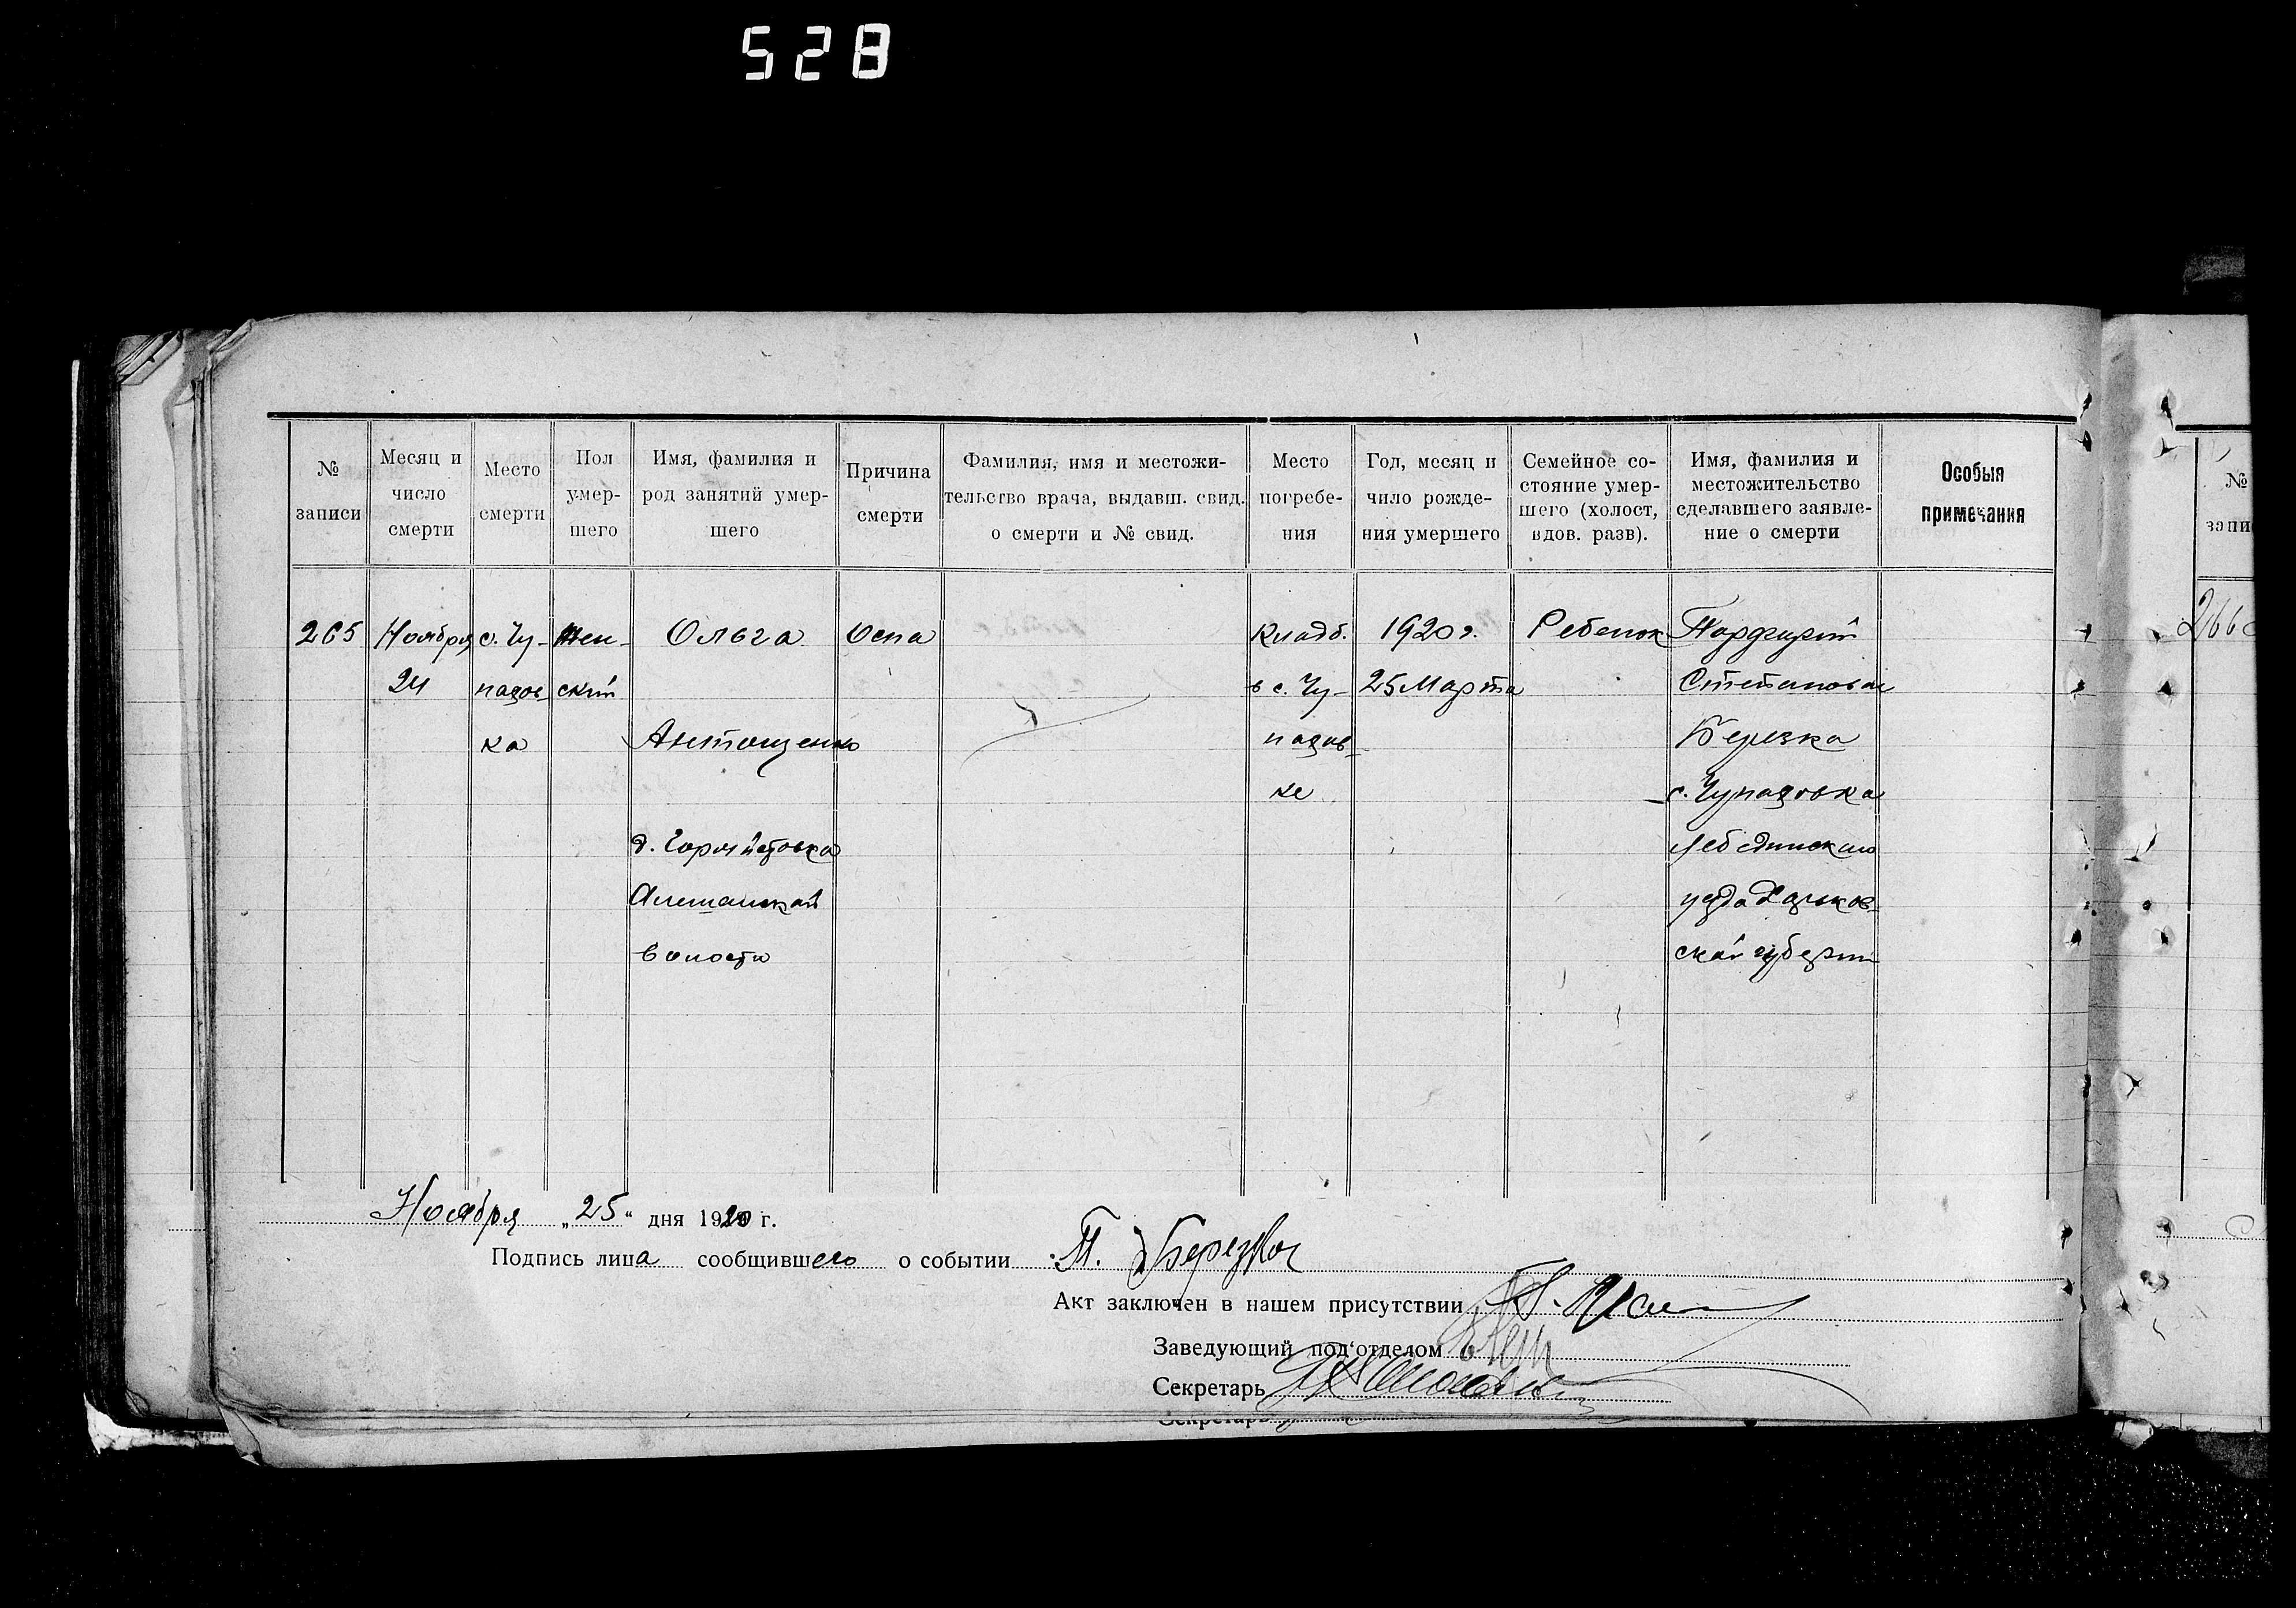 528
№ записи
Месяц и число смерти
Место смерти
Пол умер-шего
Имя, фамилия и род занятий умер-шего
Причина смерти
Фамилия, имя и местожи-тельство врача, выдавш. свид. о смерти и № свид.
Место погребе-ния
Год, месяц и чило рожде-ния умершего
Семейное со-стояние умер-шего (холост, вдов. разв).
Имя, фамилия и местожительство сделавшего заявле-ние о смерти
Особыя примечания
265
Ноября
24
с. Чу-
пахов
ка
Жен-
ский
Ольга
Антощенко
д.
волости
Оспа
Кладб.
в с. Чу-
пахов-
ке
1920 г.
25 Марта
Ребенок
Порфирий
Степанович
Березка
с. Чупаховка
Лебединскаго
уезда Харьков-
ской губерни
№
запи
266
Ноября „25“ дня 1920 г.
Подпись лица сообщившего о событии П. Березка
Акт заключен в нашем присутствии
Заведующий под'отделом
Секретарь
Секретарь